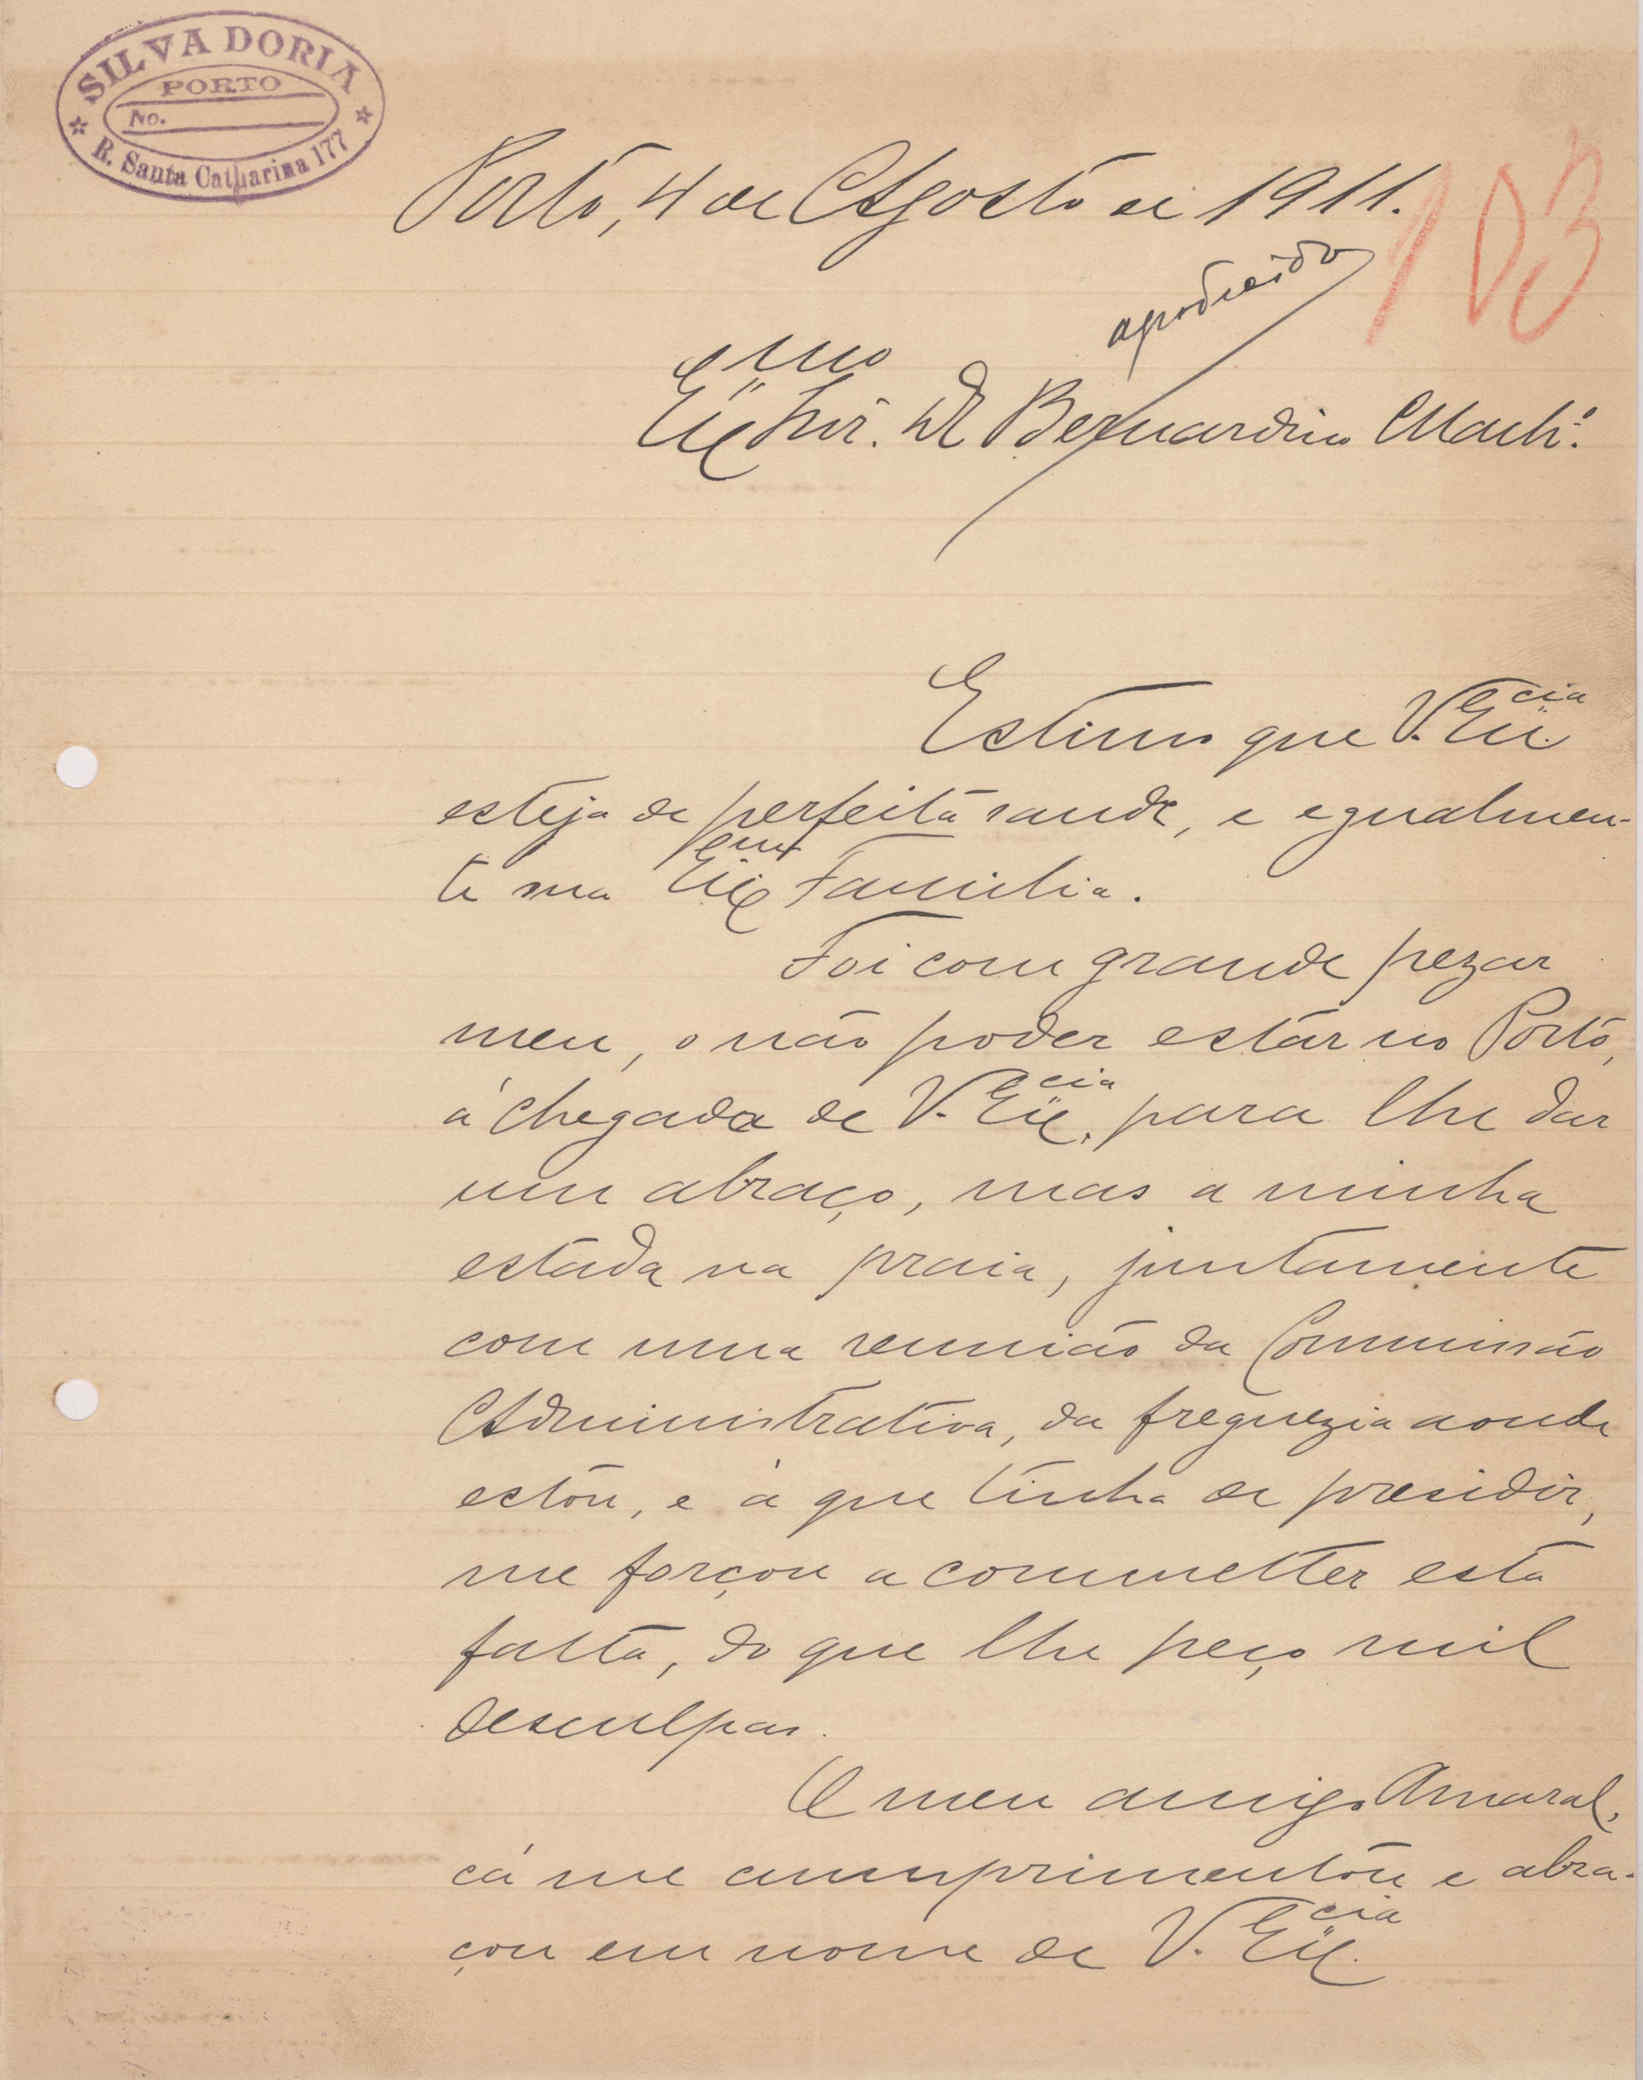 SILVA DORIA
PORTO
No.
R. Santa Catharina 177
Porto, 4 de Agosto de 1911.
103
agradecido
Exmo Snr. Dr Bernardino Machº.
Estimo que V. Excia
esteja de perfeita saude, e egualmen-
te sua Exma Familia.
Foi com grande pezar
meu, o não poder estar no Porto,
á chegada de V. Excia, para lhe dar
um abraço, mas a minha
estada na praia, juntamente
com uma reunião da Commissão
Administrativa, da freguezia aonde
estou, e á que tinha de presidir,
me forçou a commetter esta
falta, do que lhe peço mil
desculpas.
O meu amigo Amaral,
cá me cumprimentou e abra-
çou em nome de V. Excia.